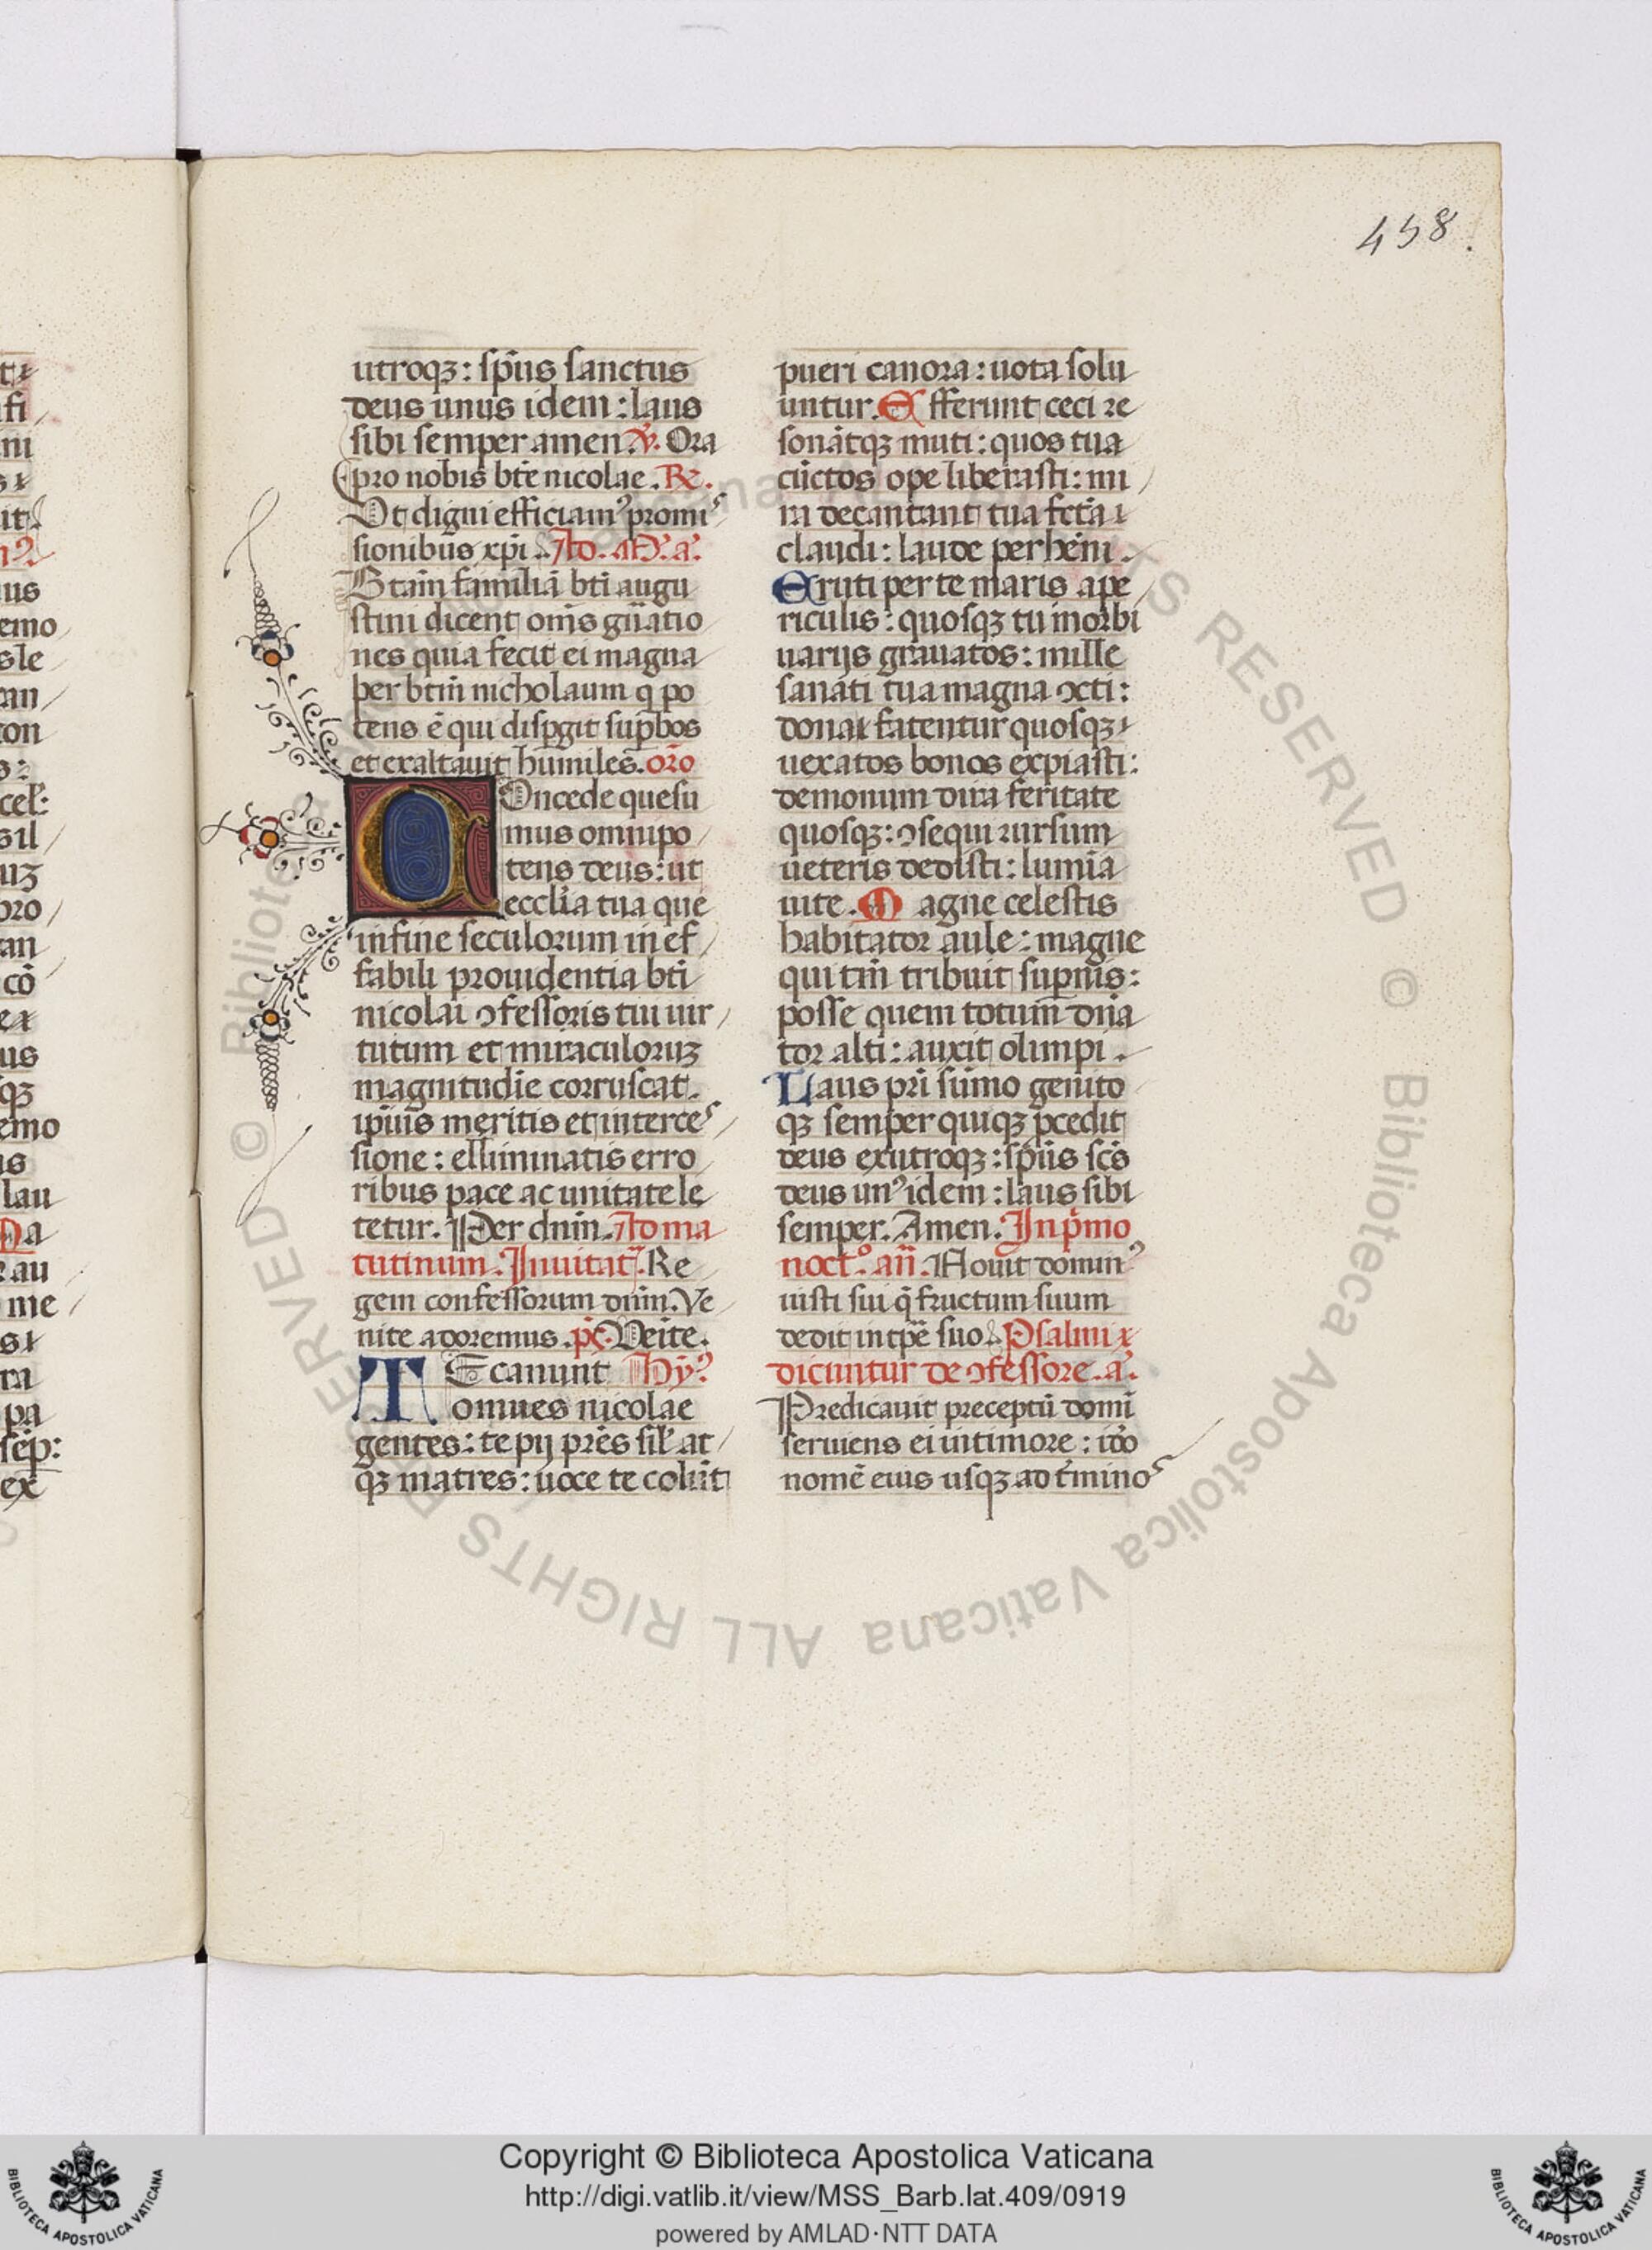 458.
utroqꝫ: sp̄us sanctus
deus unus idem: laus
sibi semper amen. ℣. Ora
pro nobis bt̄e nicolae. ℞.
Ut digni efficiamꝰ promis
sionibus xp̄i. Ad. M̄. a̓.
Btām familiā bt̄i augu
stini dicent om̄s gn̄atio
nes quia fecit ei magna
per bt̄m nicholaum q̄ po
tens ē qui disꝑgit suꝑbos
et exaltauit humiles. or̄o
Concede quesu
mus omnipo
tens deus: ut
eccl̄ia tua que
in fine seculorum in ef
fabili prouidentia bt̄i
nicolai ↄfessoris tui uir
tutum et miraculoruꝫ
magnitudīe corruscat.
ip̄ius meritis et interces
sione: elliminatis erro
ribus pace ac unitate le
tetur. Per dn̄m. Ad ma
tutinum. Inuitat̄. Re
gem confessorum dn̄m. Ve
nite adoremus. p̄s. Veīte.
TE canunt Hȳꝰ
omnes nicolae
gentes: te pij prēs sil̄ at
qꝫ matres: uoce te colūt
pueri canora: uota solu
untur. Efferunt ceci re
sonātqꝫ muti: quos tua
cūctos ope liberasti: mi
ra decantant tua fct̄a
claudi: laude perhēni.
Eruti per te maris a pe
riculis: quosqꝫ tu morbi
uarijs grauatos: mille
sanāti tua magna ↄcti:
dona fatentur quosqꝫ
uexatos bonos expiasti:
demonum dira feritate
quosqꝫ: ↄsequi rursum
ueteris dedisti: lumīa
uite. Magne celestis
habitator aule: magne
qui tm̄ tribuit suꝑnis:
posse quem totum dn̄a
tor alti: auxit olimpi.
Laus pr̄i sūmo genito
qꝫ semper quiqꝫ p̄cedit
deus ex utroqꝫ: sp̄us scs̄
deus unꝰ idem: laus sibi
semper. Amen. In p̄mo
noct̊. an̄. Nouit dominꝰ
uisti sui q̄ fructum suum
dedit in tp̄e suo. Psalmi
dicuntur de ↄfessore. a̓.
Predicauit preceptū domī
seruiens ei ī timore: iđo
nomē eius usqꝫ ad t̄minos
Copyright © Biblioteca Apostolica Vaticana
http://digi.vatlib.it/view/MSS_Barb.lat.409/0919
powered by AMLAD·NTT DATA
BIBLIOTECA APOSTOLICA VATICANA
BIBLIOTECA APOSTOLICA VATICANA
© Biblioteca Apostolica Vaticana ALL RIGHTS RESERVED